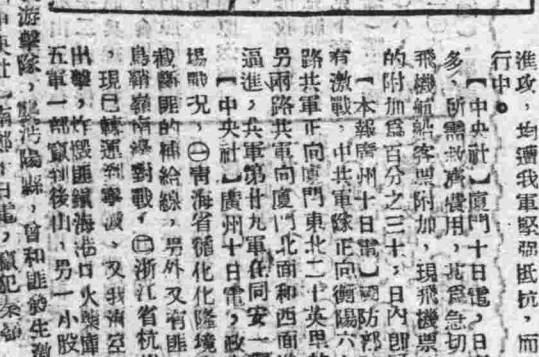 進攻，均遭我軍堅强抵抗，而
行中。
【中央社】廈門十日電，日
多，所需救濟費用，甚爲急切
飛機航船客票附加，現飛機票
的附加爲百分之三十，日內卽
【本報廣州十日電】國防部
有激戰，中共軍隊正向衡陽六
路共軍正向廈門東北二十英里
另兩路共軍向廈門北面和西面
逼進，共軍第廿九軍在同安一
【中央社】廣州十日電，政
場戰況，㊀靑海省循化化隆境
截斷匪的補給線，另外又有匪
鳥鞘嶺南麓對戰，㊁浙江省杭
，現已轉運到寧波，又我海空
出擊，炸燬匪鎭海港口火藥庫
五軍一部竄到後山，另一小股
游擊隊，陽縣，曾和匪發生激
中央社 日電，竄犯